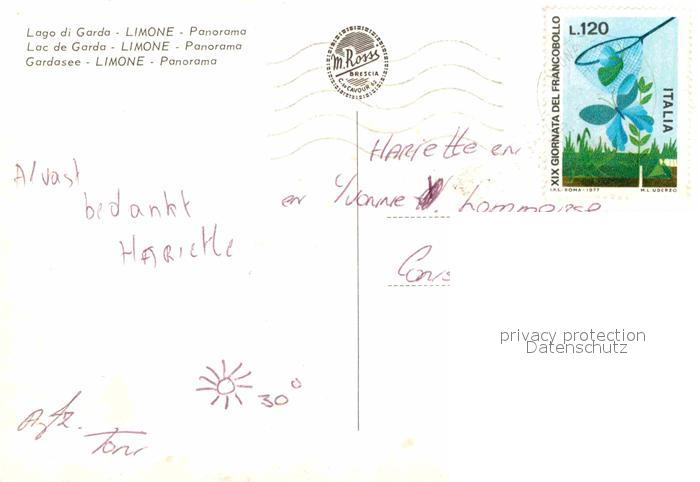 Lago di Garda - LIMONE - Panorama
Lac de Garda - LIMONE - Panorama
Gardasee - LIMONE - Panorama
M. Rossi
BRESCIA
L.120
XIX GIORNATA DEL FRANCOBOLLO
ITALIA
I.P.S.-ROMA-1977
M.L. UDERZO
Alvast
bedankt
HARIETTE
HARIETTE en
en Yvonne
privacy protection
Datenschutz
30°
Afz.